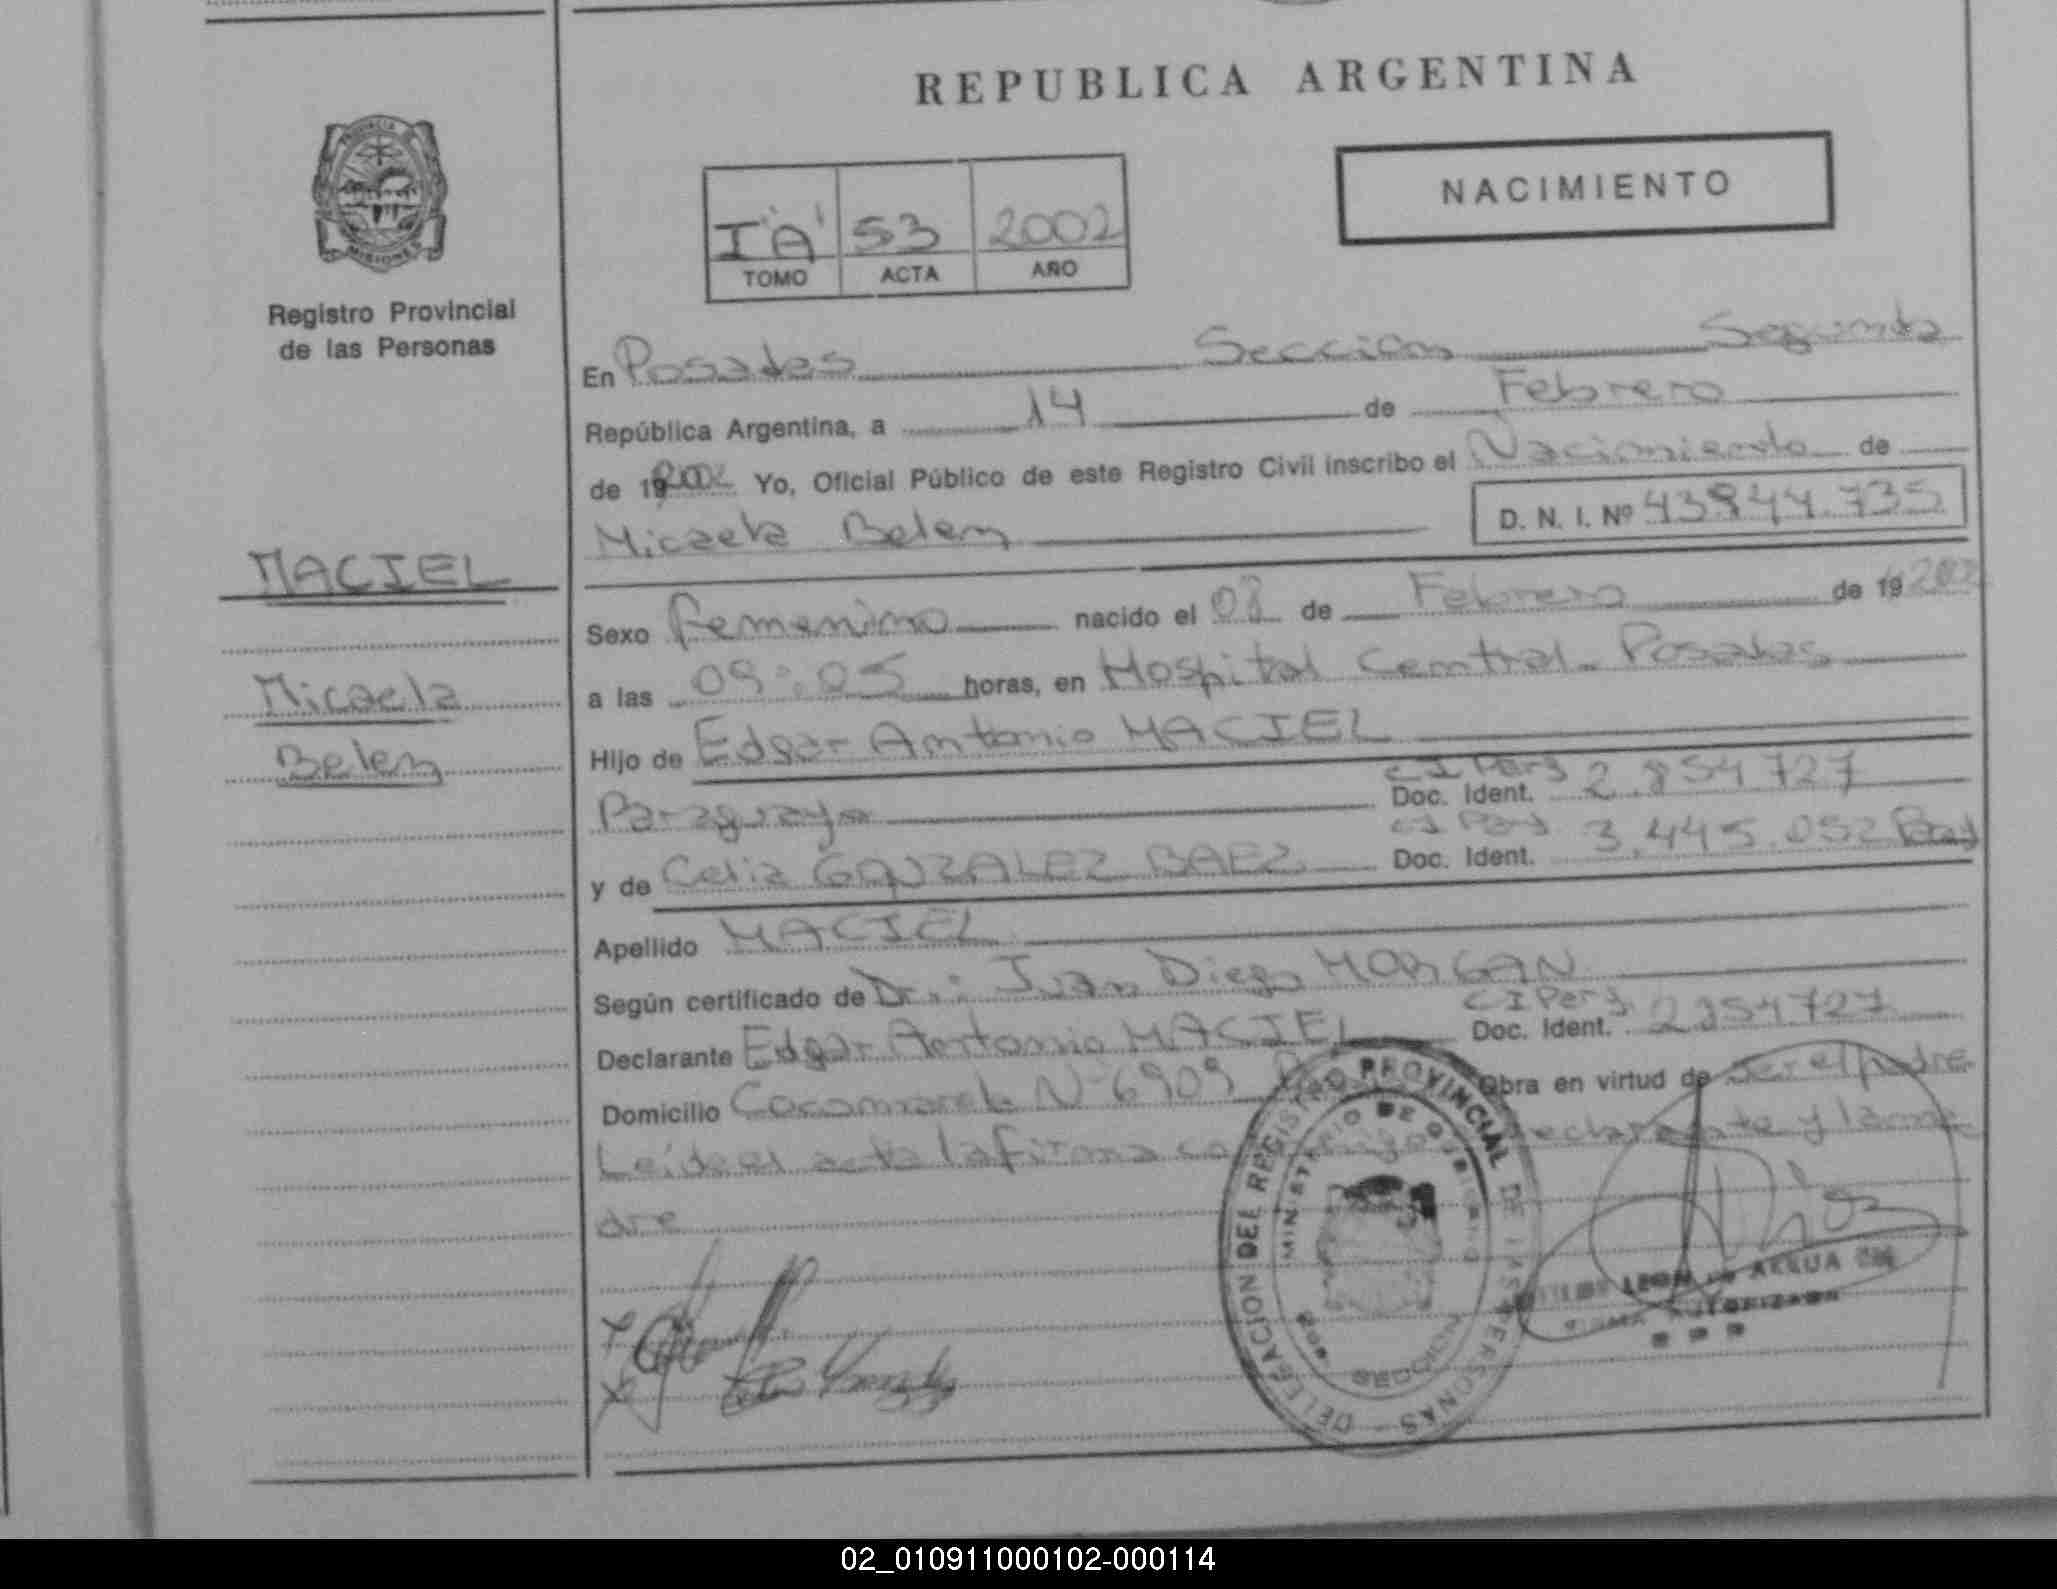 REPUBLICA ARGENTINA
NACIMIENTO
I "A" 53 2002
TOMO ACTA AÑO
PROVINCIA DE
MISIONES
Registro Provincial
de las Personas
MACIEL
Micaela
Belen
En Posadas Seccion Segunda
República Argentina, a 14 de Febrero
de 19 2002 Yo, Oficial Público de este Registro Civil inscribo el Nacimiento de
Micaela Belen D. N. I. Nº 43844.735
Sexo femenino nacido el 08 de Febrero de 19 2002
a las 09:05 horas, en Hospital Central Posadas
Hijo de Edgar Antonio MACIEL
Paraguayo CI Parg Doc. Ident. 2.854727
y de Celia GONZALEZ BAEZ Doc. Ident. 3.445.052
Apellido MACIEL
Según certificado de Dr.: Juan Diego MORGAN
Declarante Edgar Antonio MACIEL CI Parg Doc. Ident. 2854727
Domicilio Nº 6909 Obra en virtud de ser el padre
Leida el acta la firma conmigo declarante y la ma
dre
DELEGACION DEL REGISTRO PROVINCIAL DE LAS PERSONAS
MINISTERIO DE GOBIERNO
SECCION
FIRMA AUTORIZADA
02_010911000102-000114